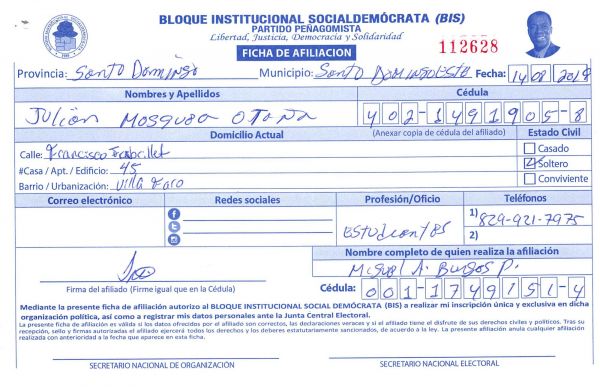 BLOQUE INSTITUCIONAL SOCIALDEMÓCRATA (BIS)
PARTIDO PEÑAGOMISTA
Libertad, Justicia, Democracia y Solidaridad
FICHA DE AFILIACION
112628
Provincia: Santo Domingo Municipio: Santo Domingo Este Fecha: 14 08 2018
Nombres y Apellidos Cédula
Julian Mosquea Otaña 402-1491905-8
Domicilio Actual (Anexar copia de cédula del afiliado) Estado Civil
Calle: Francisco Casado
#Casa / Apt. / Edificio: 45 Soltero
Barrio / Urbanización: Villa Faro Conviviente
Correo electrónico Redes sociales Profesión/Oficio Teléfonos
Estudiantes 1) 829-921-7975
2)
Nombre completo de quien realiza la afiliación
Miguel A. Burgos P.
Firma del afiliado (Firme igual que en la Cédula) Cédula: 001-1749151-4
Mediante la presente ficha de afiliación autorizo al BLOQUE INSTITUCIONAL SOCIAL DEMÓCRATA (BIS) a realizar mi inscripción única y exclusiva en dicha
organización política, así como a registrar mis datos personales ante la Junta Central Electoral.
La presente ficha de afiliación es válida si los datos ofrecidos por el afiliado son correctos, las declaraciones veraces y si el afiliado tiene el disfrute de sus derechos civiles y políticos. Tras su
recepción, sello y firmas autorizadas el afiliado ejercerá todos los derechos y los deberes estatutariamente sancionados, de acuerdo a la ley. La presente afiliación anula cualquier afiliación
realizada con anterioridad a la fecha que aparece en esta ficha.
SECRETARIO NACIONAL DE ORGANIZACIÓN SECRETARIO NACIONAL ELECTORAL